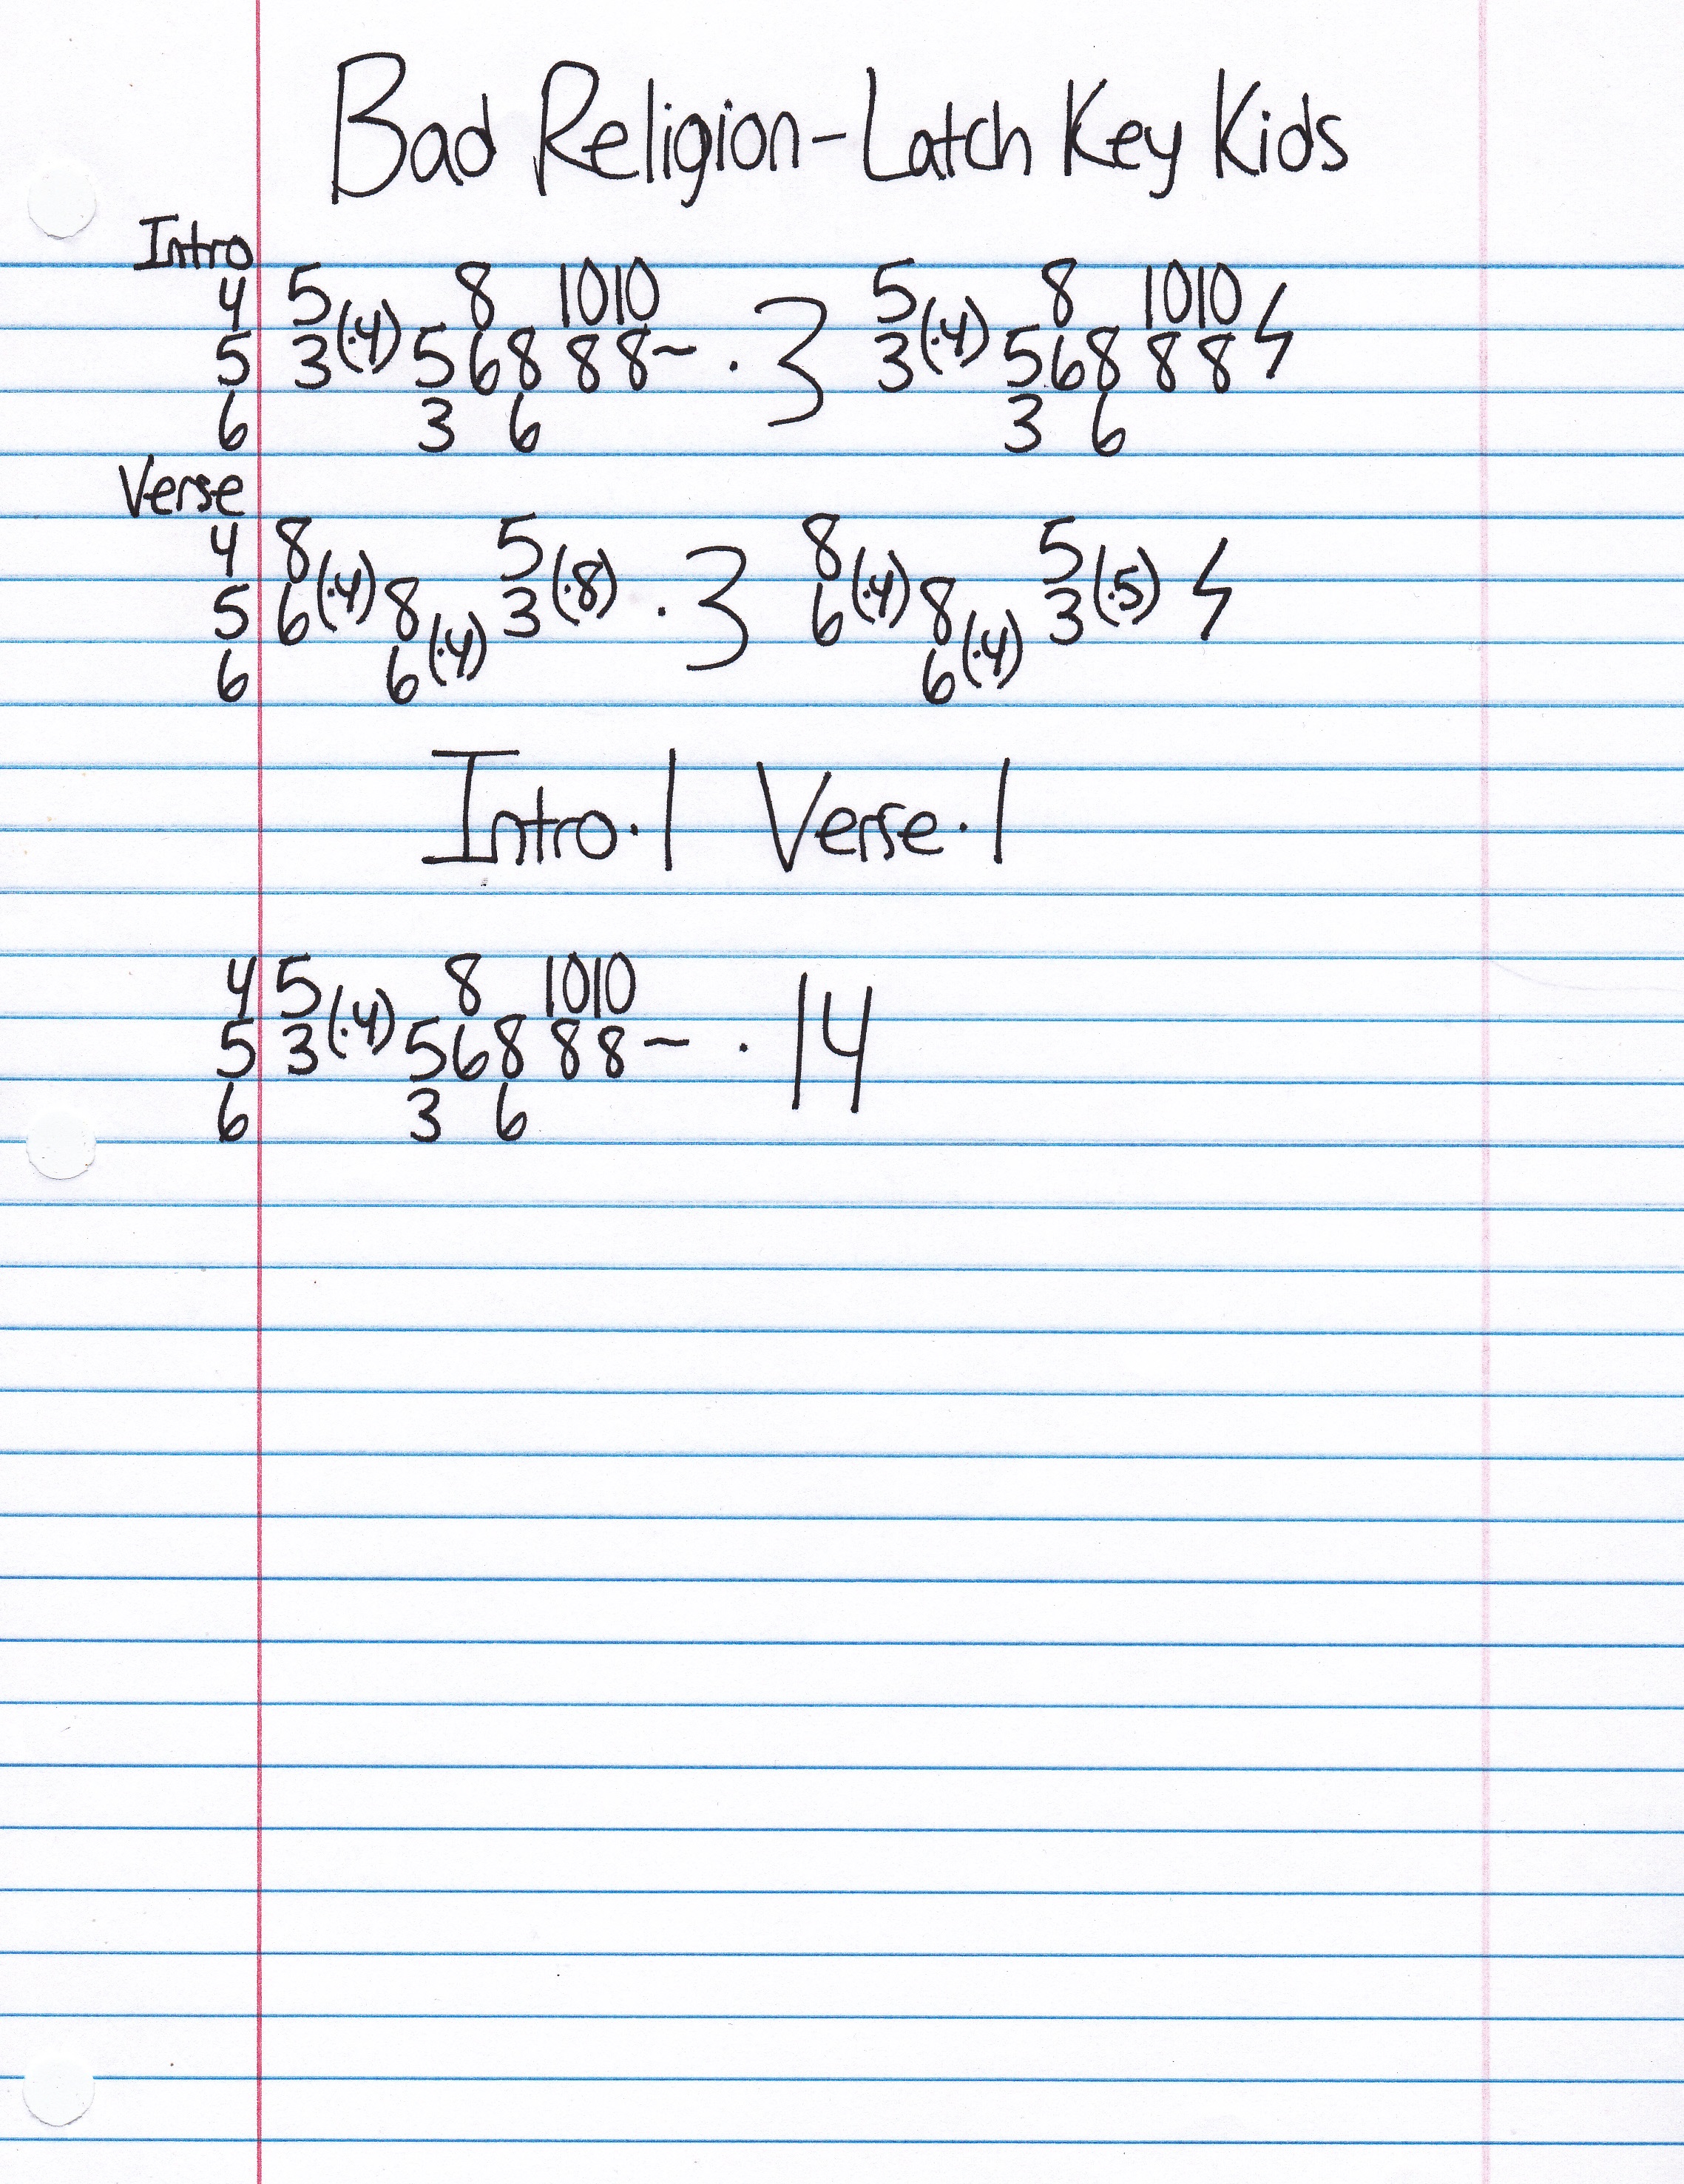 Bad Religion-Latch Key Kids
Intro
4 5 8 10 10 5 8 10 10
5 3(·4) 5 6 8 8 8 ~ ·3 3(·4) 5 6 8 8 8 ϟ
6 3 6 3 6
Verse
4 8 5 8 5
5 6(·4) 8 3(·8) ·3 6(·4) 8 3(·5) ϟ
6 6(·4) 6(·4)
Intro·1 Verse·1
4 5 8 10 10
5 3(·4) 5 6 8 8 8 ~ ·14
6 3 6